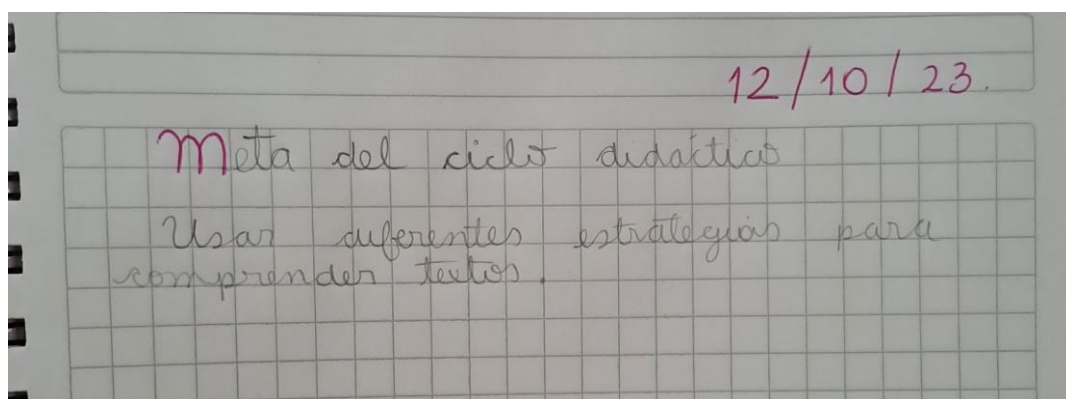 12/10/23.
Meta del ciclo didáctico
Usar diferentes estrategias para
comprender textos.